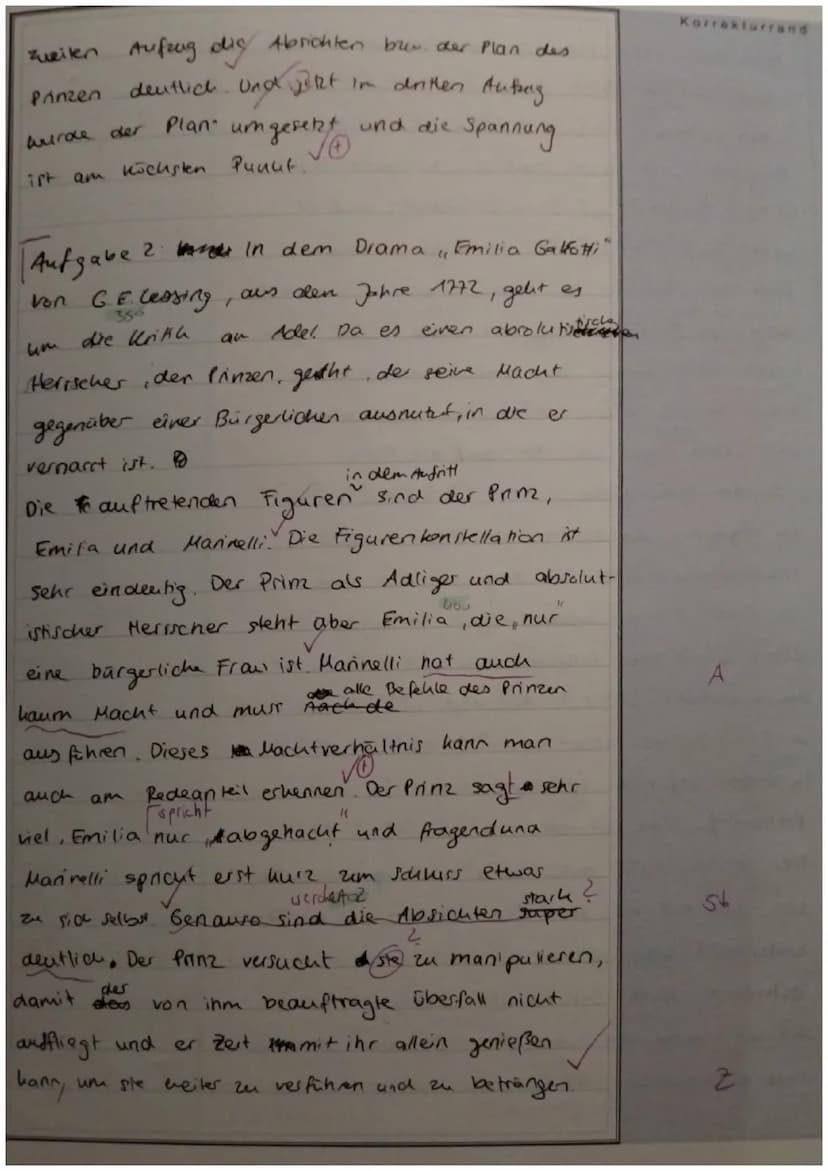 Korrekturrand
zweiten Aufzug die Absichten bzw. der Plan des
Prinzen deutlich. Und jetzt im dritten Aufzug
wurde der Plan umgesetzt und die Spannung
ist am höchsten Punkt.
Aufgabe 2 In dem Drama „Emilia Galotti"
von G.E. Lessing, aus dem Jahre 1772, geht es
um die Kritik am Adel. Da es einen absolutistische
Herrscher, den Prinzen, geht, der seine Macht
gegenüber einer Bürgerlichen ausnutzt, in die er
vernarrt ist.
in dem Auftritt
Die auftretenden Figuren sind der Prinz,
Emilia und Marinelli. Die Figurenkonstellation ist
sehr eindeutig. Der Prinz als Adliger und absolut-
istischer Herrscher steht über Emilia, die „nur"
eine bürgerliche Frau ist. Marinelli hat auch
A
alle Befehle des Prinzen
kaum Macht und muss
ausführen. Dieses Machtverhältnis kann man
auch am Redeanteil erkennen. Der Prinz sagt sehr
spricht
viel, Emilia nur „abgehackt" und fragend und
Marinelli spricht erst kurz zum Schluss etwas
stark ?
zu sich selbst. Genauso sind die Absichten super
St
deutlich. Der Prinz versucht sie zu manipulieren,
damit der von ihm beauftragte Überfall nicht
auffliegt und er Zeit mit ihr allein genießen
kann, um sie weiter zu verführen und zu beträngen
Z